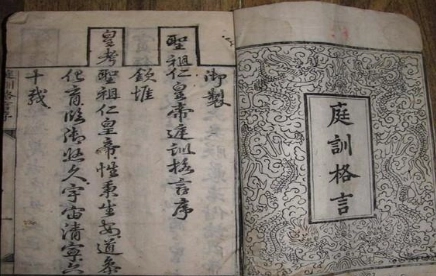 庭訓格言
御製
聖祖仁皇帝庭訓格言序
欽惟
皇考聖祖仁皇帝性秉生安道參
化育臨御悠久宇宙清寧六
十載